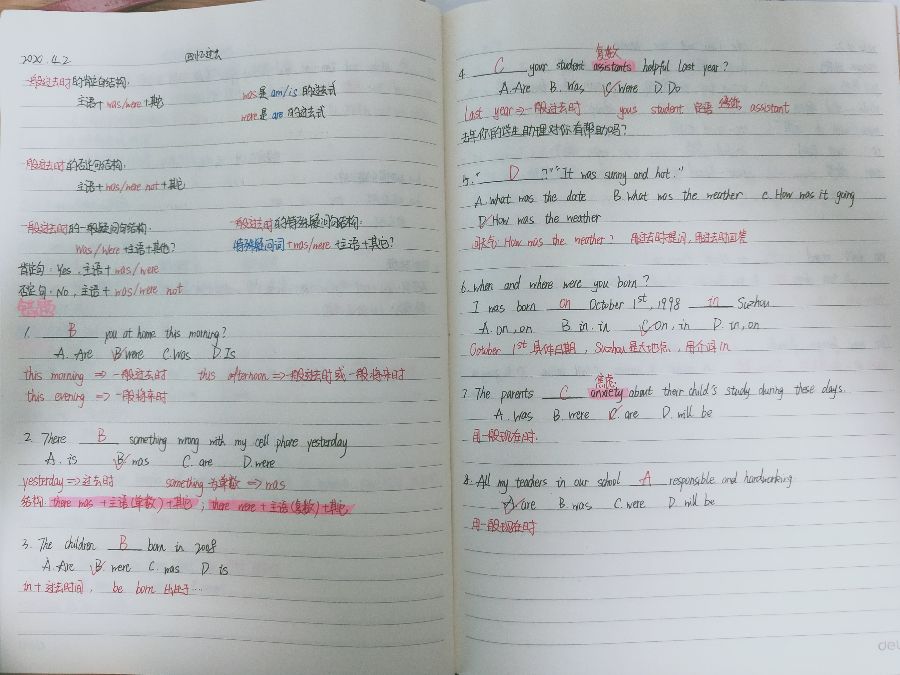 2020.4.2 回忆过去
一般过去时的肯定句结构:
主语+was/were+其它
was是am/is的过去式
were是are的过去式
一般过去时的否定句结构:
主语+was/were not+其它
一般过去时的一般疑问句结构:
Was/Were+主语+其它?
肯定句:Yes,主语+was/were
否定句:No,主语+was/were not
一般过去时的特殊疑问句结构:
特殊疑问词+was/were 主语+其他?
错题
1. B you at home this morning?
A. Are B. were C. was D. Is
this morning => 一般过去时 this afternoon => 一般过去时或一般将来时
this evening => 一般将来时
2. There B something wrong with my cell phone yesterday
A. is B. was C. are D. were
yesterday => 过去时 something 为单数 => was
结构: there was +主语(单数)+其它; there were +主语(复数)+其它
3. The children B born in 2008
A. Are B. were C. was D. is
in + 过去时间, be born 出生于…
复数
4. C your student assistants helpful last year?
A. Are B. Was C. Were D. Do
Last year => 一般过去时 your student assistant
去年你的学生助理对你有帮助吗?
5. " D ?" "It was sunny and hot."
A. what was the date B. What was the weather C. How was it going
D. How was the weather
天气: How was the weather? 用过去时提问,用过去时回答
6. when and where were you born?
I was born on October 1st, 1998 in Suzhou
A. on, on B. in. in C. on, in D. in, on
October 1st 具体日期, Suzhou是大地点,用介词in
焦虑
7. The parents C anxiety about their child's study during these days.
A. was B. were C. are D. will be
用一般现在时.
8. All my teachers in our school A responsible and hardworking
A. are B. was C. were D. will be
用一般现在时
deli